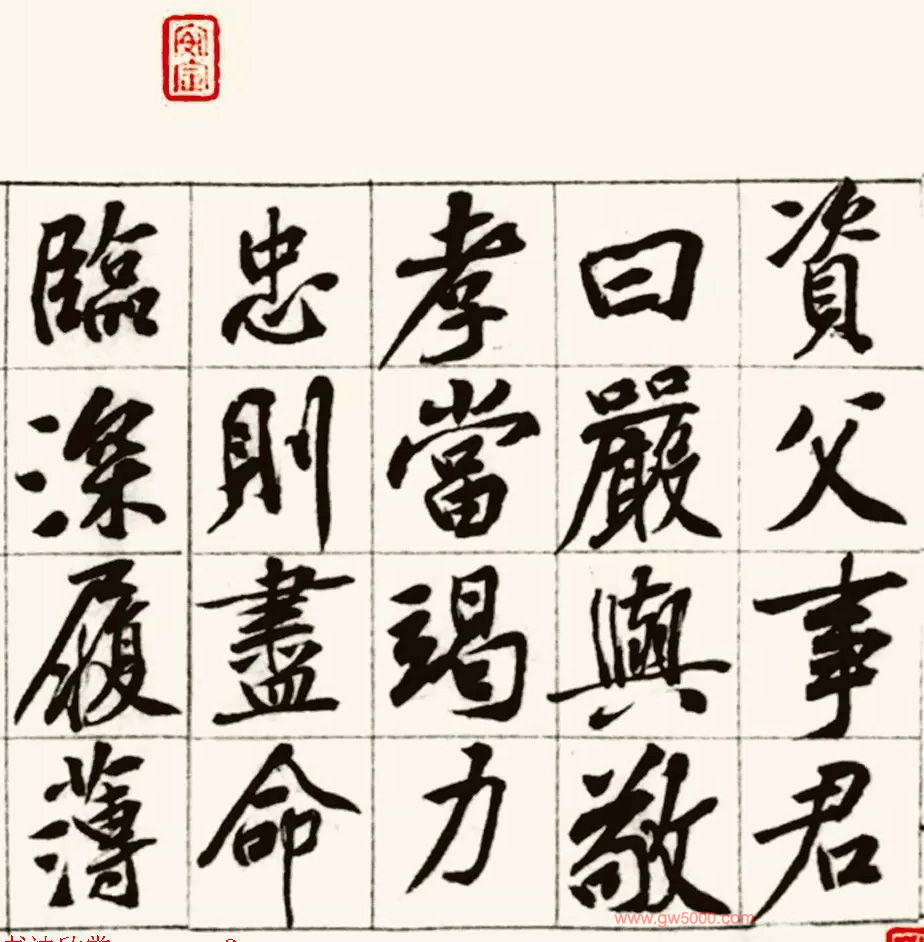 資父事君
曰嚴與敬
孝當竭力
忠則盡命
臨深履薄
www.gw5000.com